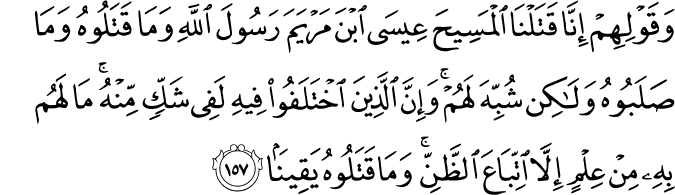 وَقَوْلِهِمْ إِنَّا قَتَلْنَا ٱلْمَسِيحَ عِيسَى ٱبْنَ مَرْيَمَ رَسُولَ ٱللَّهِ وَمَا قَتَلُوهُ وَمَا
صَلَبُوهُ وَلَـٰكِن شُبِّهَ لَهُمْ ۚ وَإِنَّ ٱلَّذِينَ ٱخْتَلَفُوا۟ فِيهِ لَفِى شَكٍّ مِّنْهُ ۚ مَا لَهُم
بِهِۦ مِنْ عِلْمٍ إِلَّا ٱتِّبَاعَ ٱلظَّنِّ ۚ وَمَا قَتَلُوهُ يَقِينًۢا ١٥٧